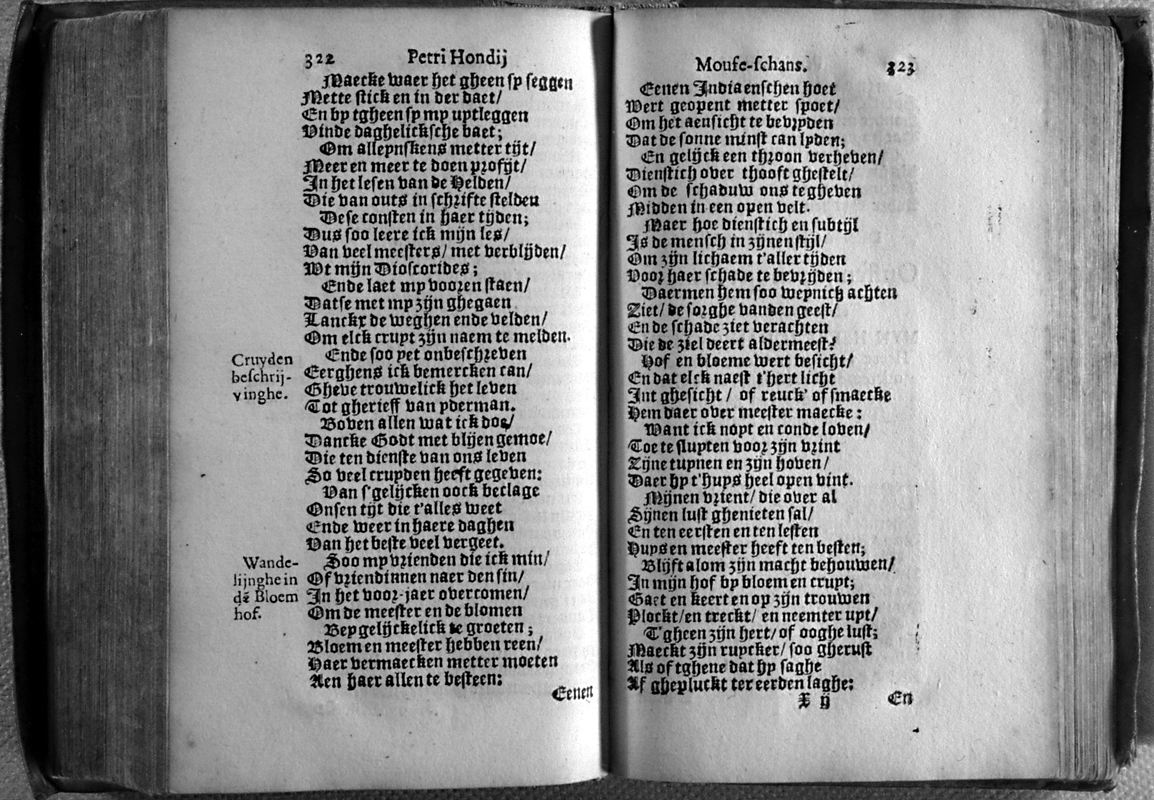 322 Petri Hondij
Maecke waer het gheen sy seggen
Mette stick en in der daet/
En by tgheen sy my uptleggen
Vinde daghelicksche baet;
Om alleynskens metter tijt/
Meer en meer te doen profijt/
In het lesen van de Helden/
Die van outs in schrifte stelden
Dese consten in haer tijden;
Dus soo leere ick mijn les/
Van veel meesters/ met verblijden/
Wt mijn Dioscorides;
Ende laet my vooren staen/
Datse met my zijn ghegaen
Lanckx de weghen ende velden/
Om elck cruyt zijn naem te melden.
Cruyden
beschrij-
vinghe.
Ende soo yet onbeschreven
Eerghens ick bemercken can/
Gheve trouwelick het leven
Tot gherieff van yderman.
Boven allen wat ick doe/
Dancke Godt met blijen gemoe/
Die ten dienste van ons leven
So veel cruyden heeft gegeven:
Van s'gelijcken oock beclage
Onsen tijt die t'alles weet
Ende weer in haere daghen
Van het beste veel vergeet.
Wande-
lijnghe in
dē Bloem
hof.
Soo my vrienden die ick min/
Of vriendinnen naer den sin/
In het voor-jaer overcomen/
Om de meester en de blomen
Beygelijckelick te groeten;
Bloem en meester hebben reen/
Haer vermaecken metter moeten
Aen haer allen te besteen:
Eenen
Mouse-schans. 323
Eenen Indiaenschen hoet
Wert geopent metter spoet/
Om het aensicht te bevryden
Dat de sonne minst can lyden;
En gelijck een throon verheven/
Dienstich over thooft ghestelt/
Om de schaduw ons tegheven
Midden in een open velt.
Maer hoe dienstich en subtijl
Is de mensch in zijnen stijl/
Om zijn lichaem t'aller tijden
Voor haer schade te bevrijden;
Daermen hem soo weynich achten
Ziet/ de sorghe vanden geest/
En de schade ziet verachten
Die de ziel deert aldermeest?
Hof en bloeme wert besicht/
En dat elck naest t'hert licht
Int ghesicht / of reuck' of smaecke
Hem daer over meester maecke:
Want ick noyt en conde loven/
Toe te sluyten voor zijn vrint
Zijne tuynen en zijn hoven/
Daer hy t'huys heel open vint.
Mijnen vrient/ die over al
Sijnen lust ghenieten sal/
En ten eersten en ten lesten
Huys en meester heeft ten besten;
Blijft alom zijn macht behouwen/
In mijn hof by bloem en cruyt;
Gaet en keert en op zijn trouwen
Plockt/ en treckt/ en neemter uyt/
T'gheen zijn hert/ of ooghe lust;
Maeckt zijn ruycker/ soo gherust
Als of tghene dat hy saghe
Af ghepluckt ter eerden laghe:
X ij En